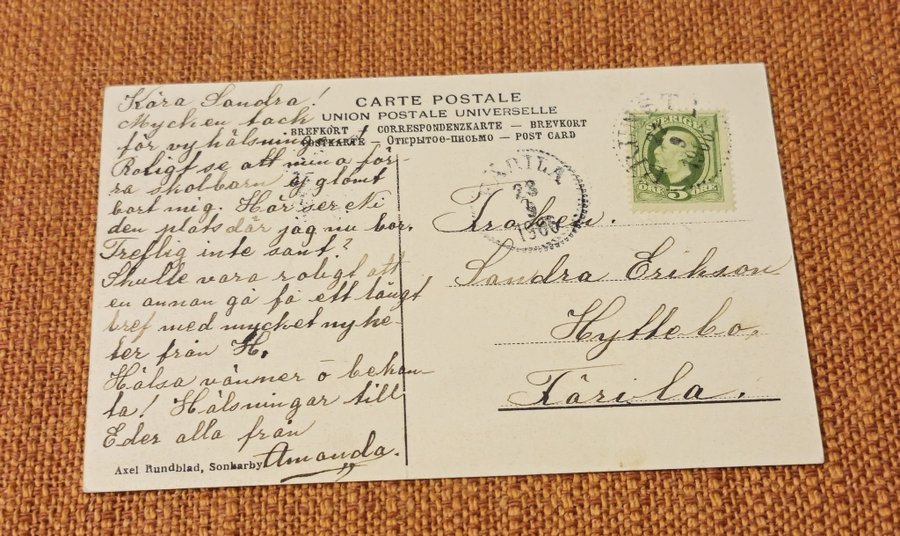 Kära Sandra!
Mycken tack
för vyhälsningen
Roligt se att mina för-
ra skolbarn ej glömt
bort mig. Här ser Ni
den plats där jag nu bor.
Treflig inte sant?
Skulle vara roligt att
en annan gå få ett långt
bref med mycket nyhe-
ter från H.
Hälsa vänner o bekan-
ta! Hälsningar till
Eder alla från
Amanda.
Axel Rundblad, Sonkarby
CARTE POSTALE
UNION POSTALE UNIVERSELLE
BREFKORT CORRESPONDENZKARTE - BREVKORT
POSTKARTE - Открытое-письмо - POST CARD
SVERIGE
ÖRE 5 ÖRE
FÄRILA
23
9
1906
Fröken.
Sandra Erikson
Hyttebo.
Färila.